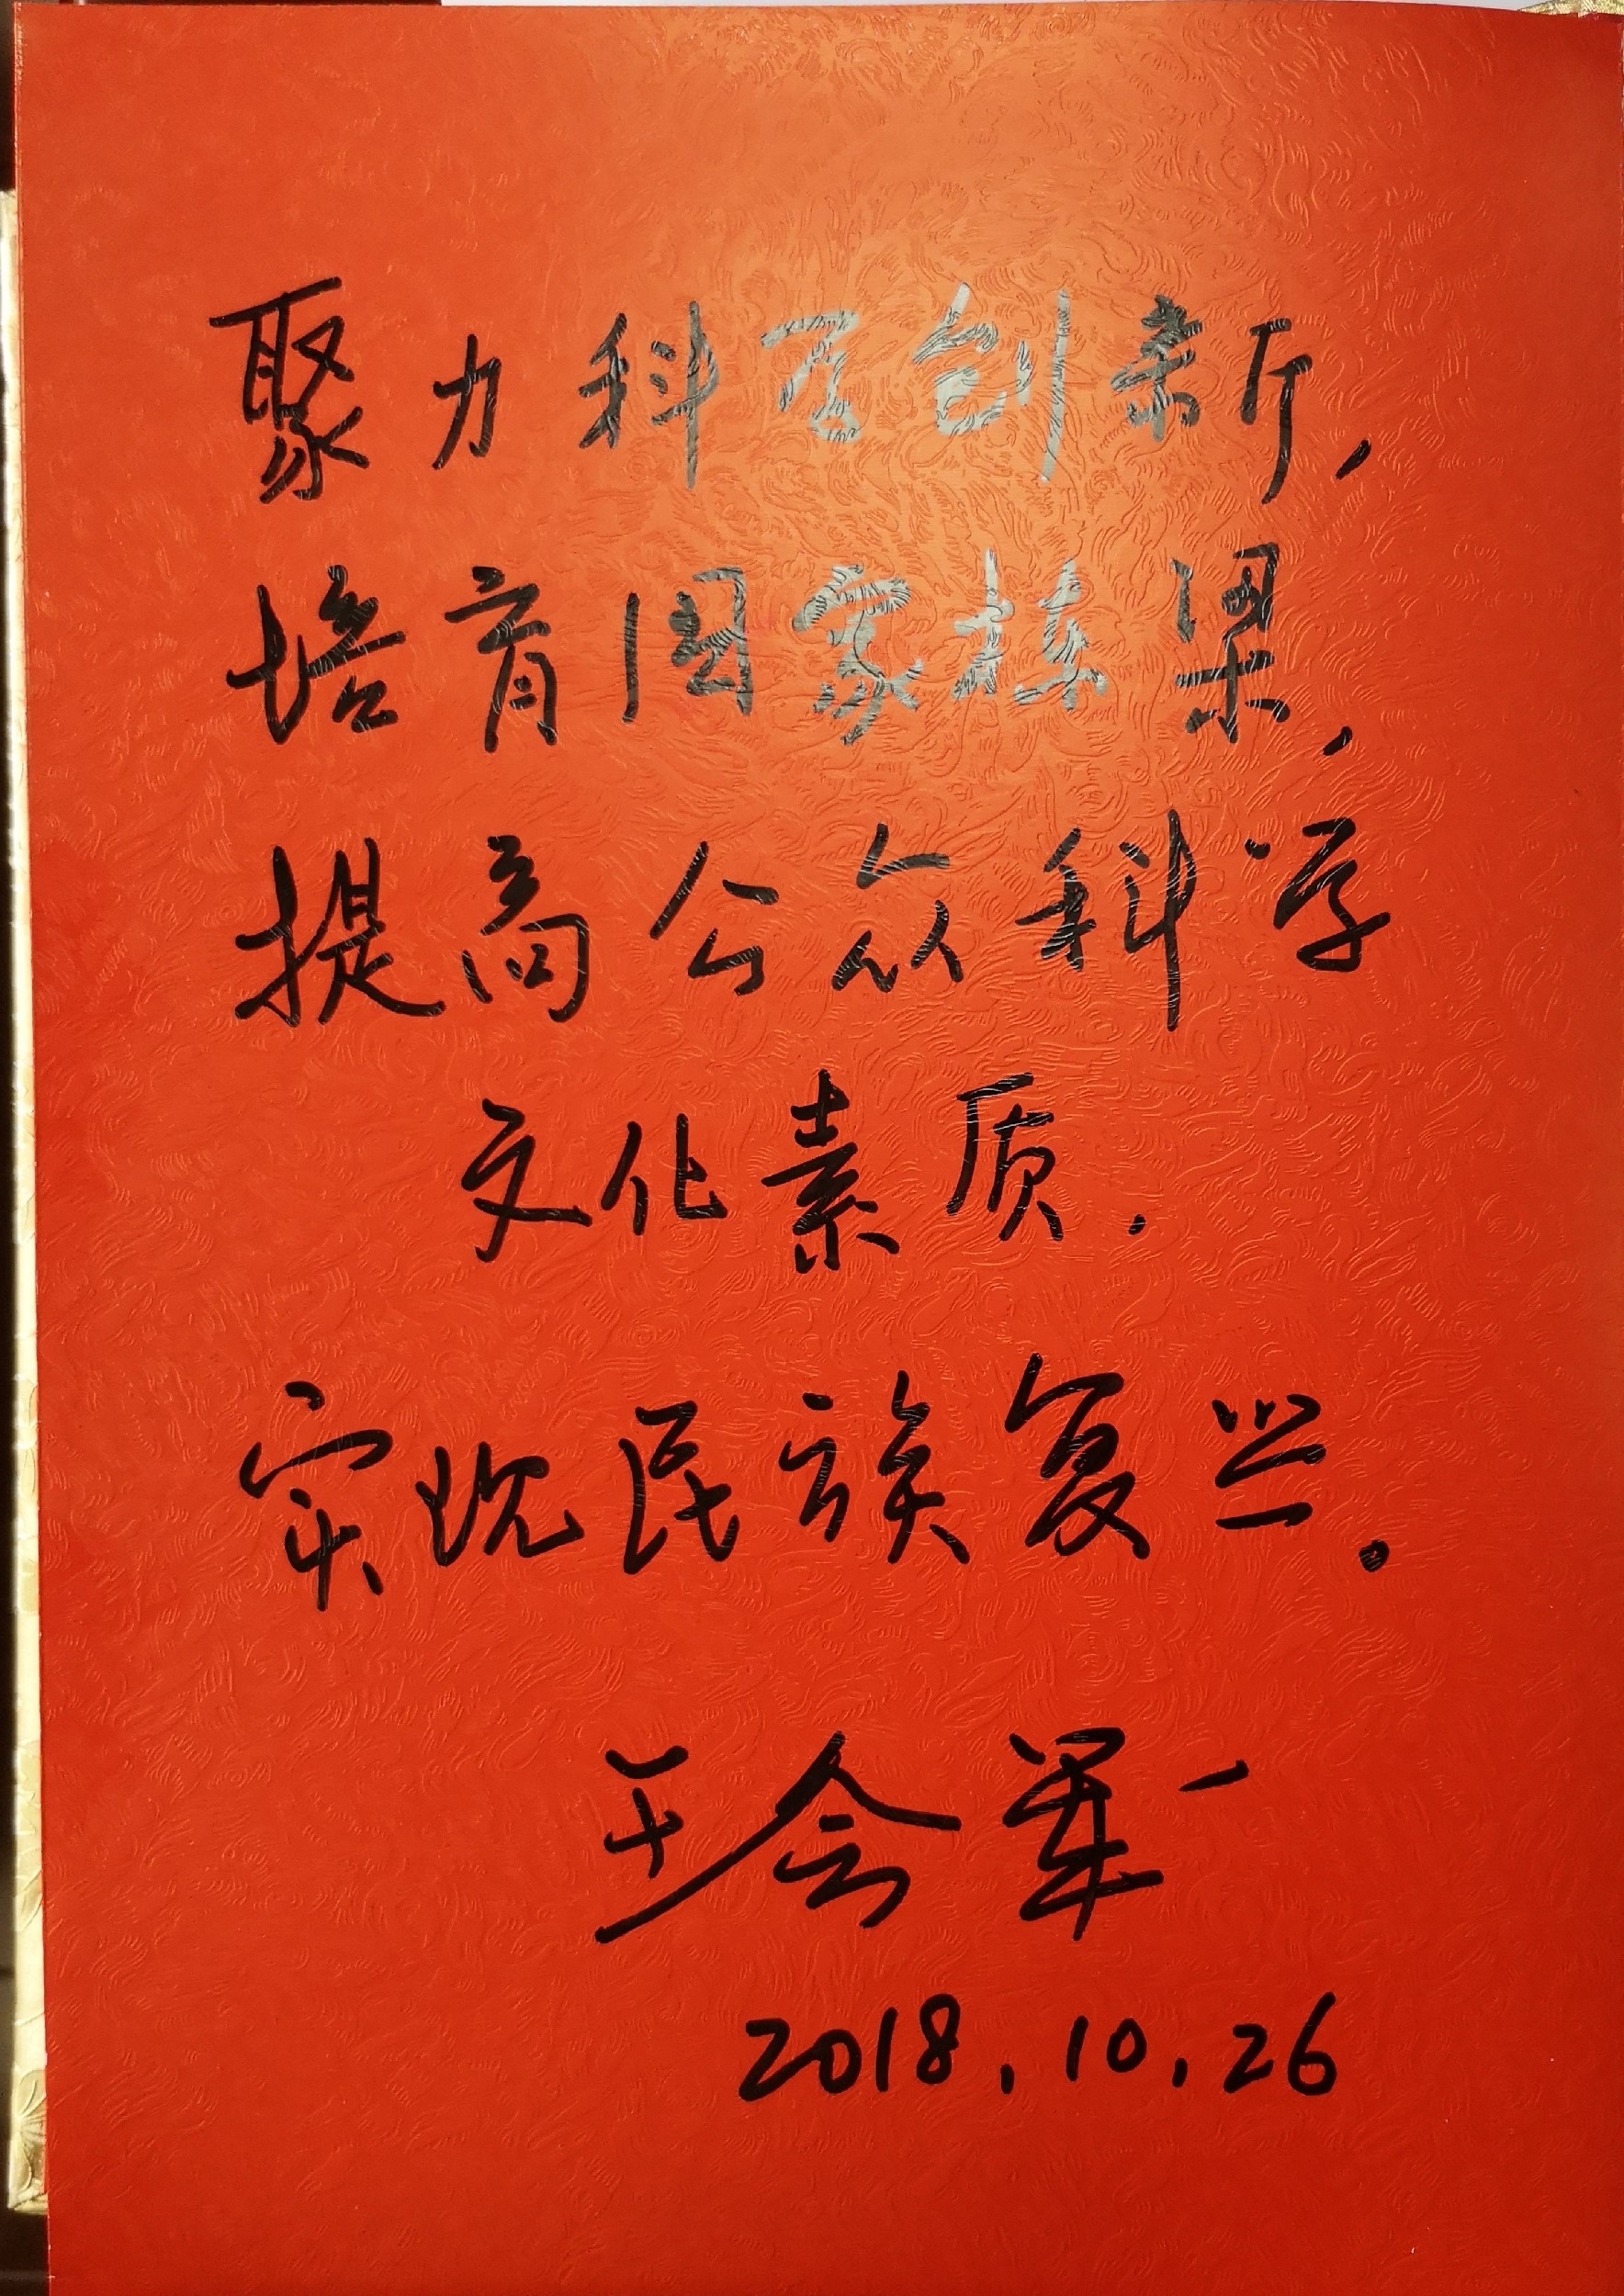 聚力科学创新，
培育国家栋梁，
提高公众科学
文化素质，
实现民族复兴。
王会军
2018.10.26